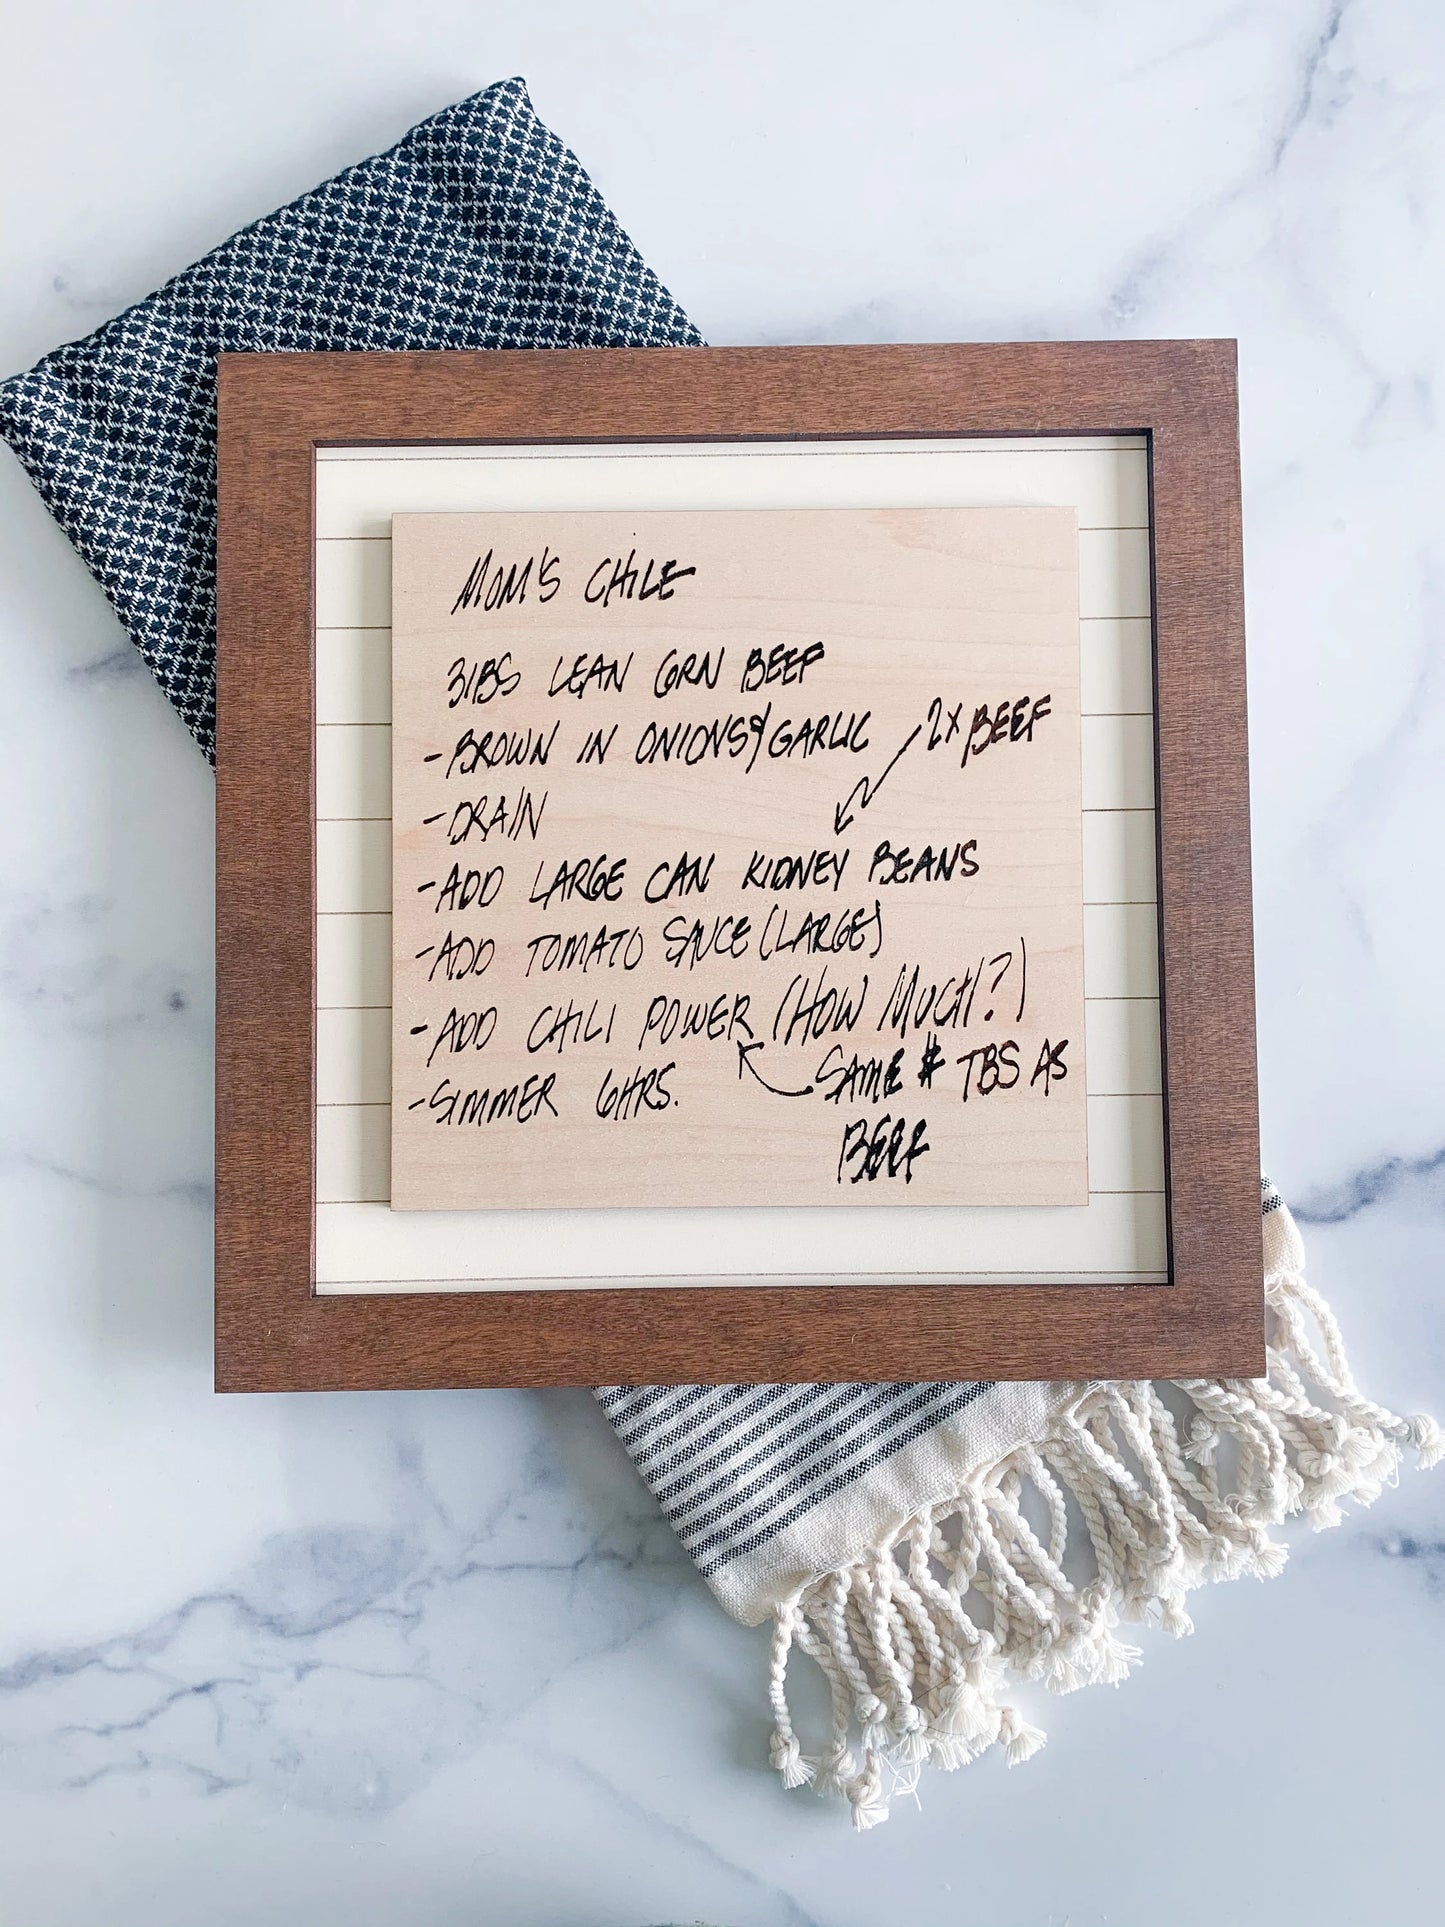 MOM'S CHILE
3lBS LEAN GRN BEEF
-BROWN IN ONIONS & GARLIC
2X BEEF
-DRAIN
-ADD LARGE CAN KIDNEY BEANS
-ADD TOMATO SAUCE (LARGE)
-ADD CHILI POWER (HOW MUCH?)
SAME # TBS AS
BEEF
-SIMMER 6HRS.